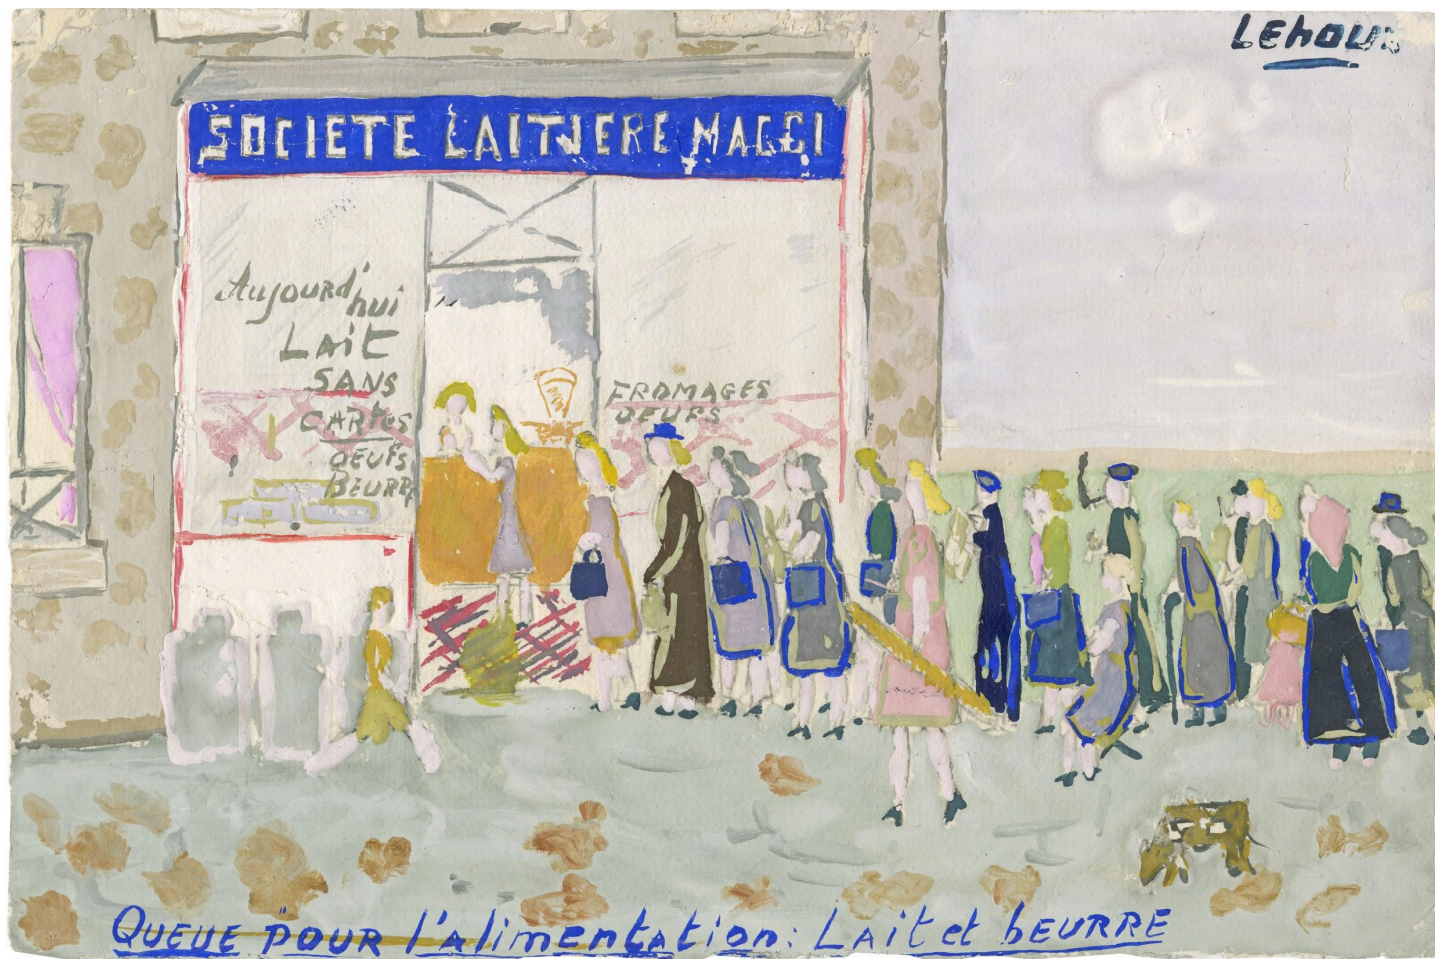 LEhoux
SOCIETE LAITIERE MAGGI
Aujourd'
hui
Lait
SANS
CARTES
OEUFS
BEURRE
FROMAGES
OEUFS
QUEUE POUR l'alimentation: Lait et bEURRE